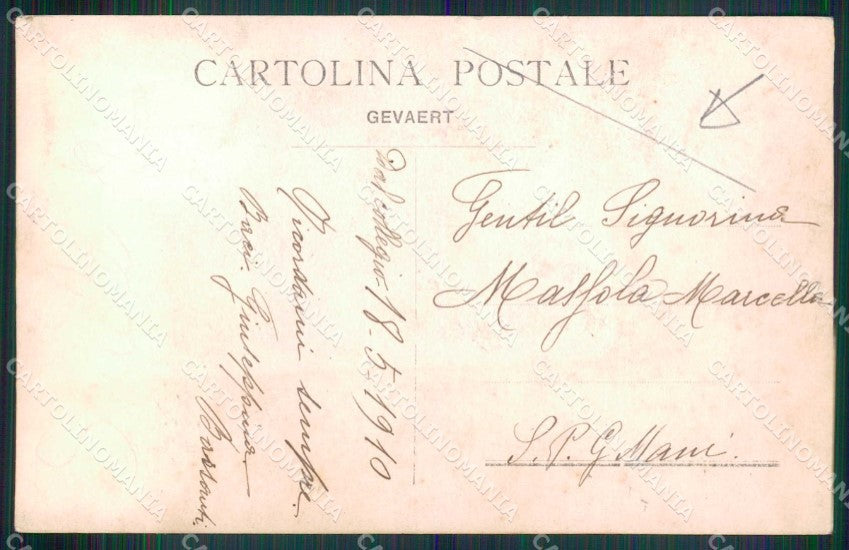 CARTOLINA POSTALE
GEVAERT
Dal collegio 18-5-1910
Ricordami sempre.
Baci. Giuseppina
Gentil Signorina
Massola Marcella
S. P. G. Mani.
CARTOLINOMANIA